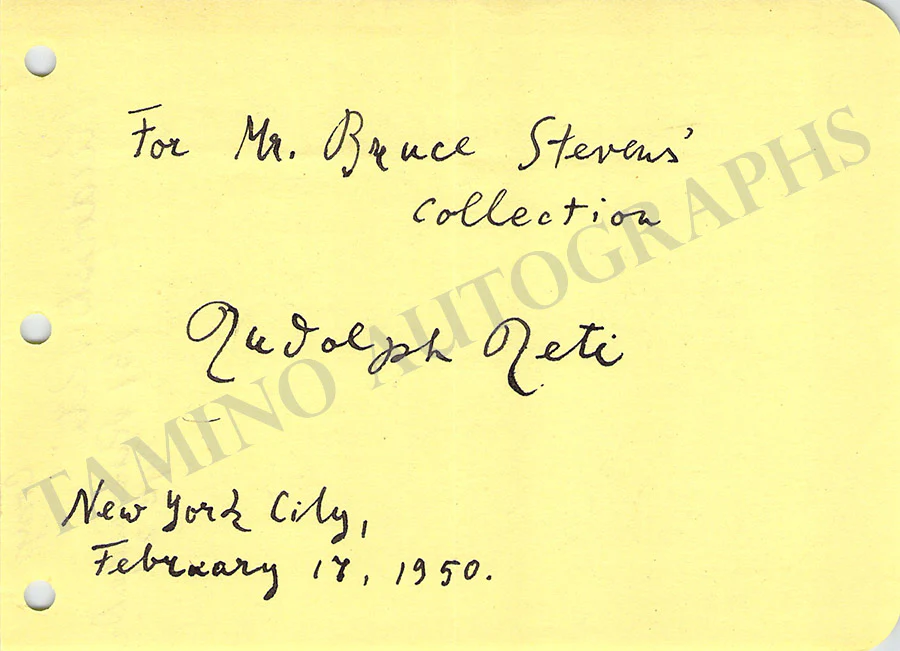 For Mr. Bruce Stevens'
collection
Rudolph Reti
TAMINO AUTOGRAPHS
New York City,
February 17, 1950.